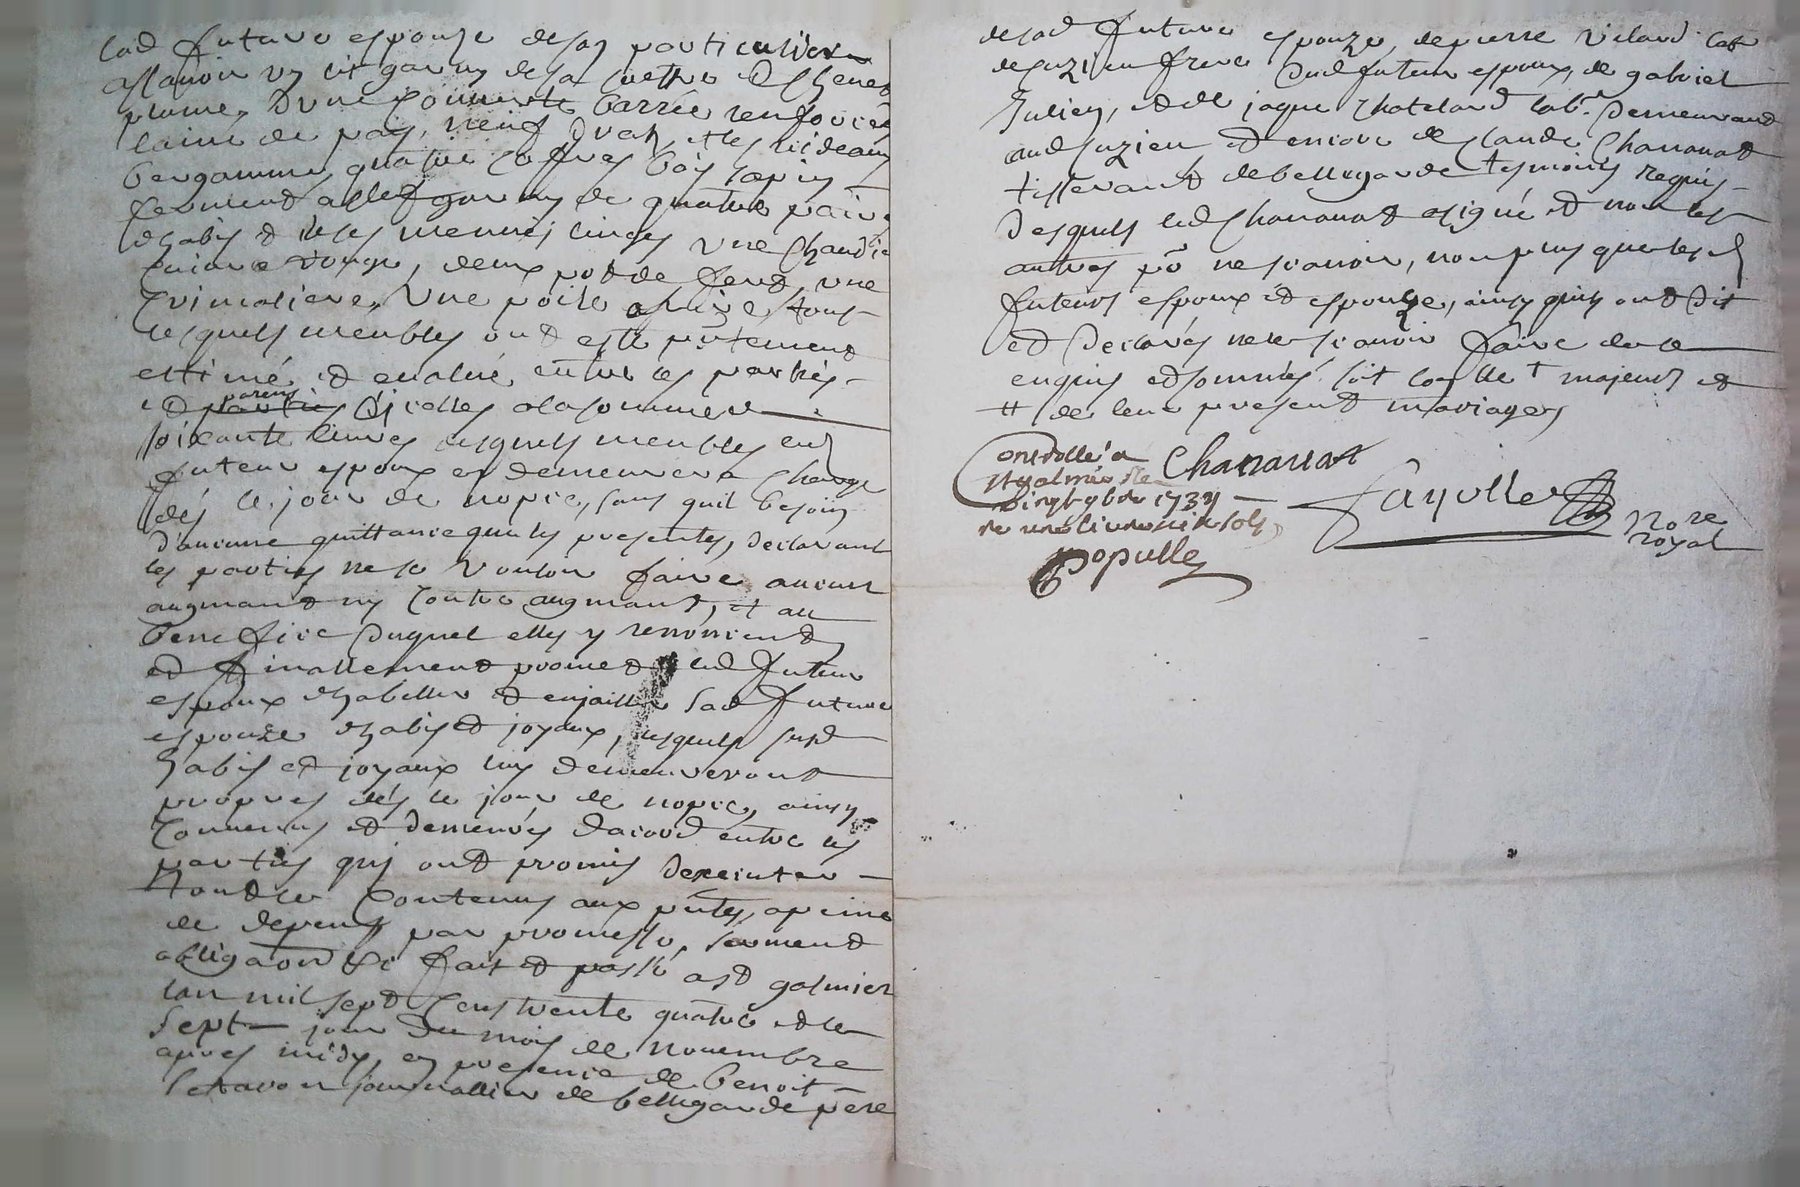 lad future espouse de son particulier
assauoir un lit garny de sa coettre de chenet
plume, d'une couuerte barrée
laine de pays, neuf drat, et les rideaux
bergamme, quatre coffres bois sapin
fermend a clef garny de quatre paire
d'habis et de ses menus linges une chaudie
cuiure rouge, deux pot de fend, une
crimaliere, une poile a frire tous
lesquels meubles ont esté pntement
estimé et eualué entre les parties
et parens d'icelles a la somme de
soixante liures desquels meubles led
futeur espoux en demeurera charge
dés le jour de nopce, sans quil besoin
d'aucune quittance que les presentes, declarant
les parties ne se vouloir faire aucun
augmand ny contre augmand, et au
benefice duquel elles y renoncent
et finallement promet led futeur
espoux d'habiller et enjailler sad future
espouze d'habis et joyaux, lesquels susd
habis et joyaux luy demeureront
propres dés le jour de nopce, ainsy
conuenus et demeurés d'acord entre les
parties qui ont promis
tout le contenus aux pntes, a peine
de depens par promesse, serment
obligaon &c fait et passé a St galmier
lan mil sept cens trente quatre et le
sept jour du mois de nouembre
apres midy, en presence de benoit
journallier de bellegarde pere
de sad future espouze, de pierre vilard lab
de suzieu frere dud futeur espoux, de gabriel
Julien, et de jaque chateland lab.r demeurand
aud suzieu et encore de claude Chananat
tisserand de bellegarde tesmoins requis
desquels led Chananat a signé et non les
autres po ne scauoir, non plus que lesd
futeurs espoux et espouse, ainsy quils ont dit
et declarés ne le scauoir faire de ce
enquis et sommés soit
# de leur present mariage
Controllé a Chananat
St galmier le
vingt 9bre 1734 Fayolle
une liure six sols No.re
Populle royal